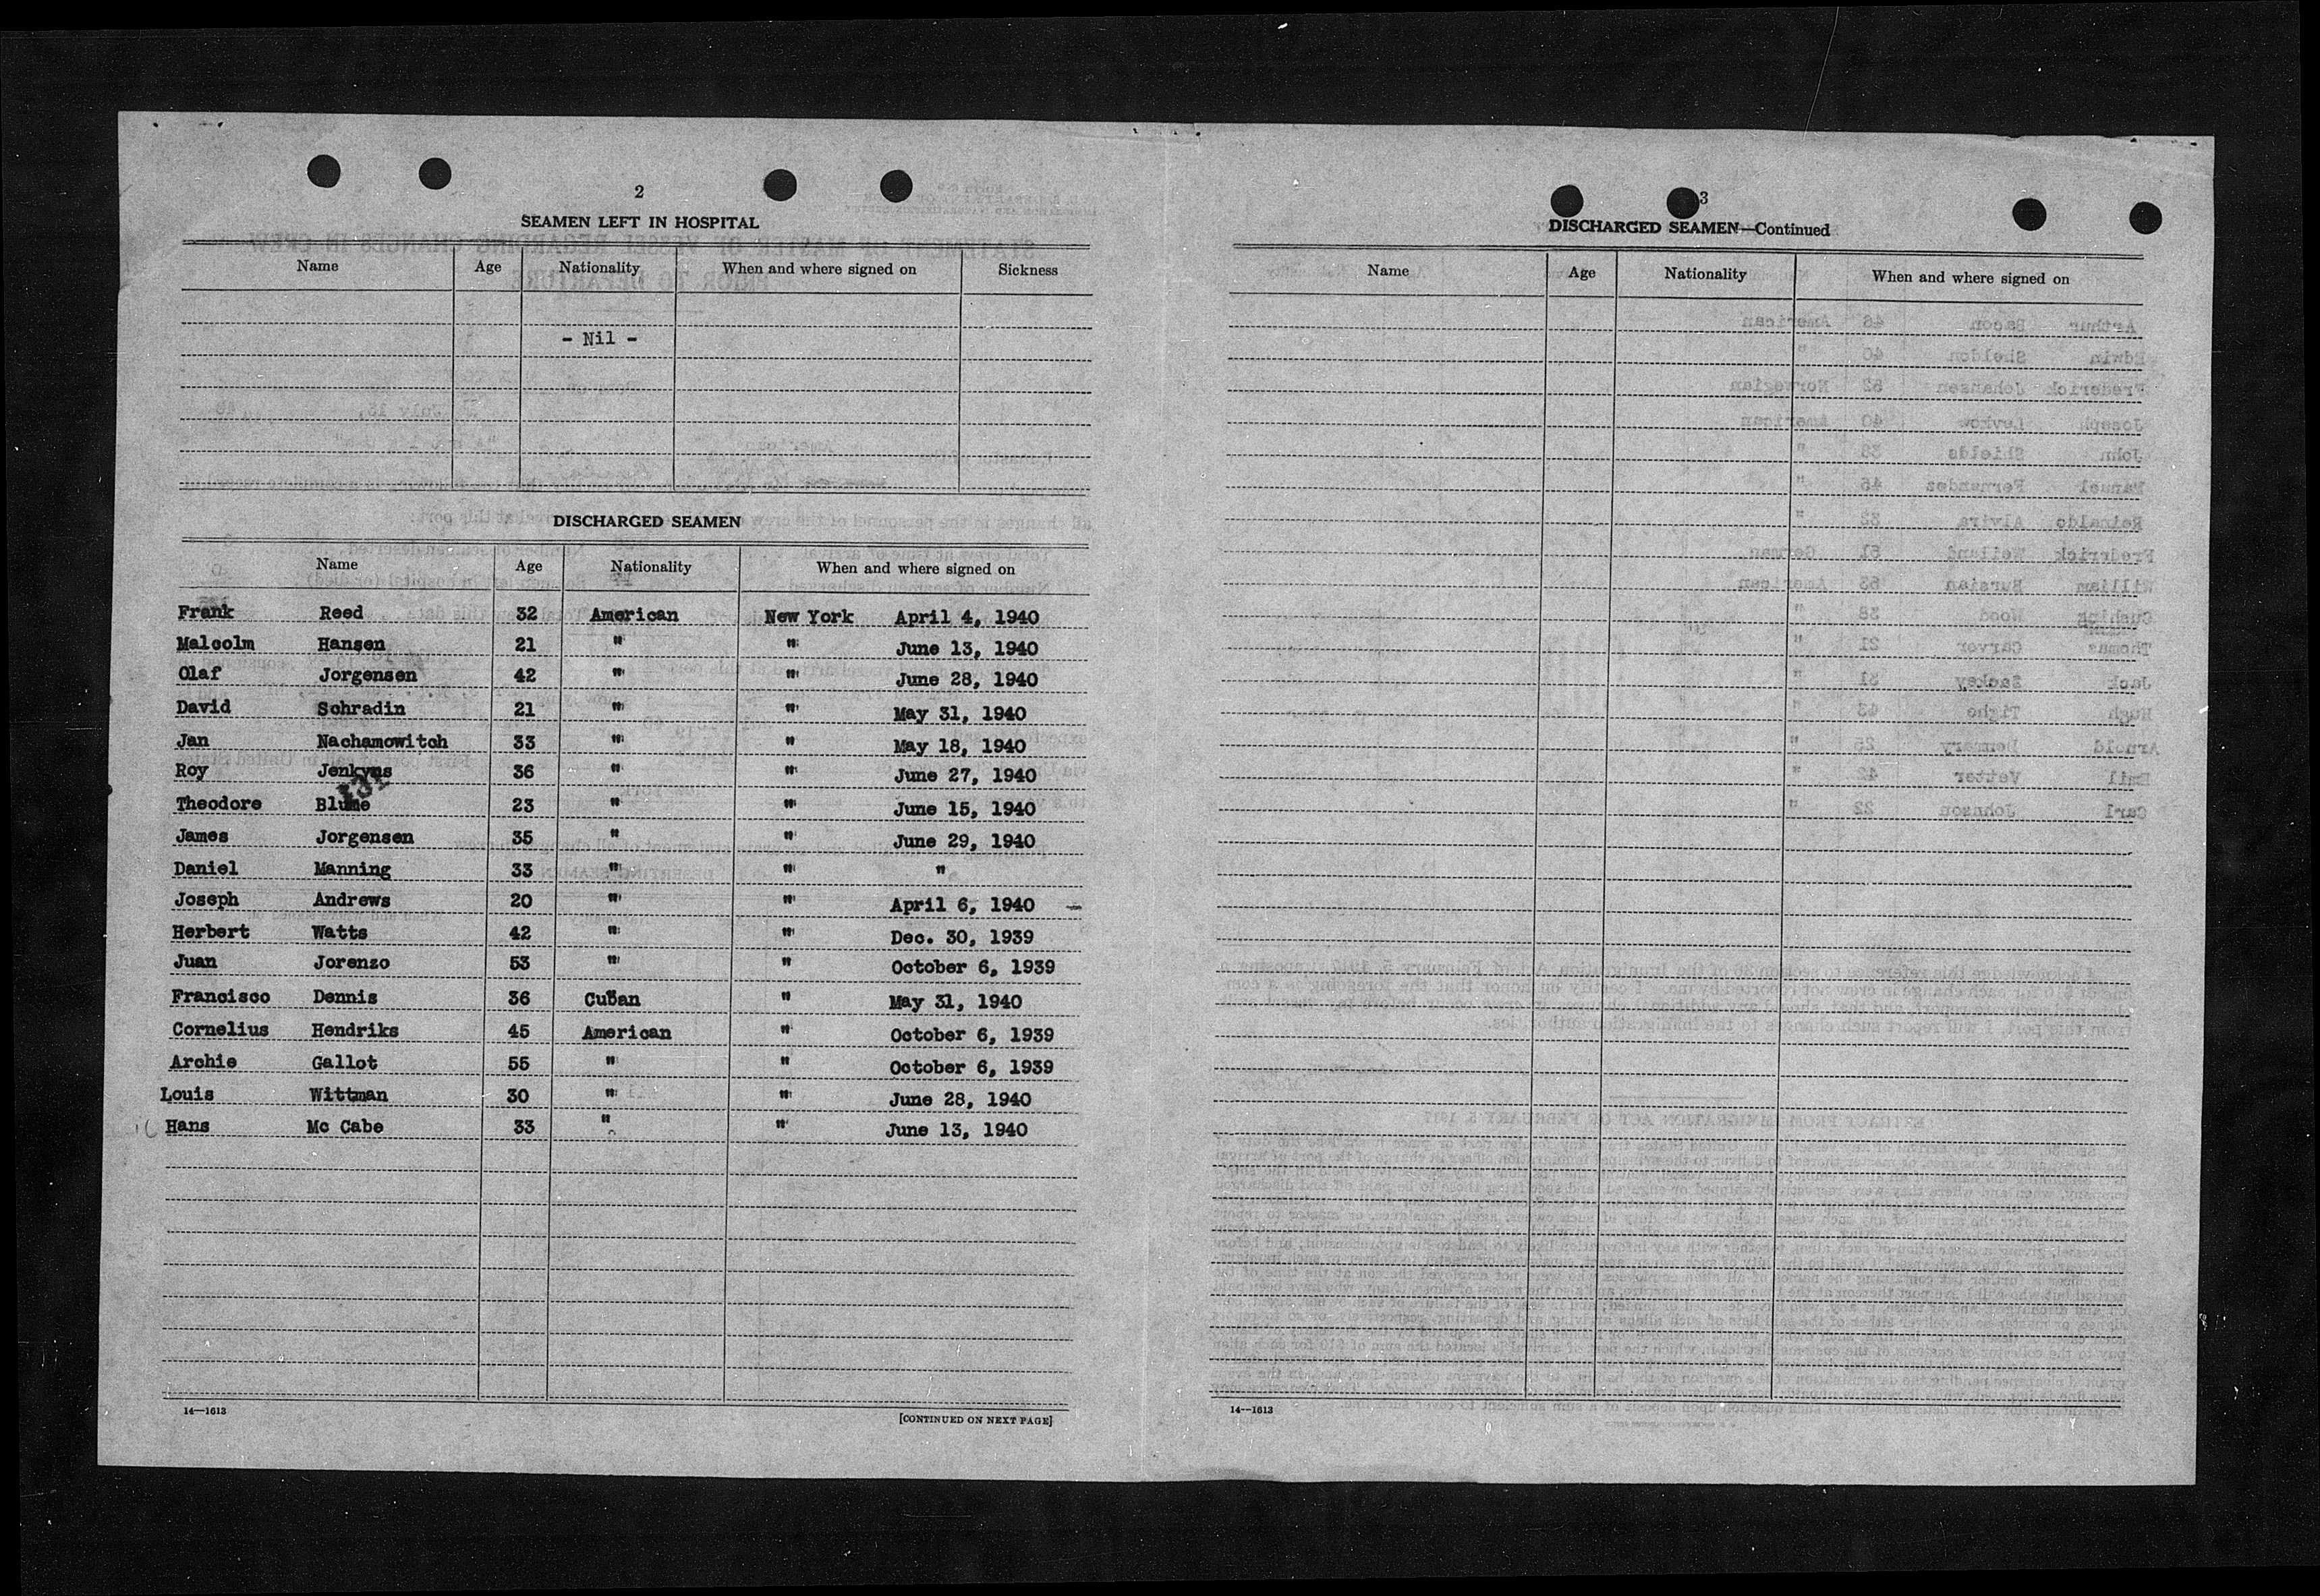 2
SEAMEN LEFT IN HOSPITAL
Name Age Nationality When and where signed on Sickness
- Nil -
DISCHARGED SEAMEN
Name Age Nationality When and where signed on
Frank Reed 32 American New York April 4, 1940
Malcolm Hansen 21 " " June 13, 1940
Olaf Jorgensen 42 " " June 28, 1940
David Schradin 21 " " May 31, 1940
Jan Nachamowitch 33 " " May 18, 1940
Roy Jenkyns 36 " " June 27, 1940
Theodore Blume 23 " " June 15, 1940
James Jorgensen 35 " " June 29, 1940
Daniel Manning 33 " " "
Joseph Andrews 20 " " April 6, 1940
Herbert Watts 42 " " Dec. 30, 1939
Juan Jorenzo 53 " " October 6, 1939
Francisco Dennis 36 Cuban " May 31, 1940
Cornelius Hendriks 45 American " October 6, 1939
Archie Gallot 55 " " October 6, 1939
Louis Wittman 30 " " June 28, 1940
Hans Mc Cabe 33 " " June 13, 1940
14—1613
[CONTINUED ON NEXT PAGE]
3
DISCHARGED SEAMEN—Continued
Name Age Nationality When and where signed on
14—1613